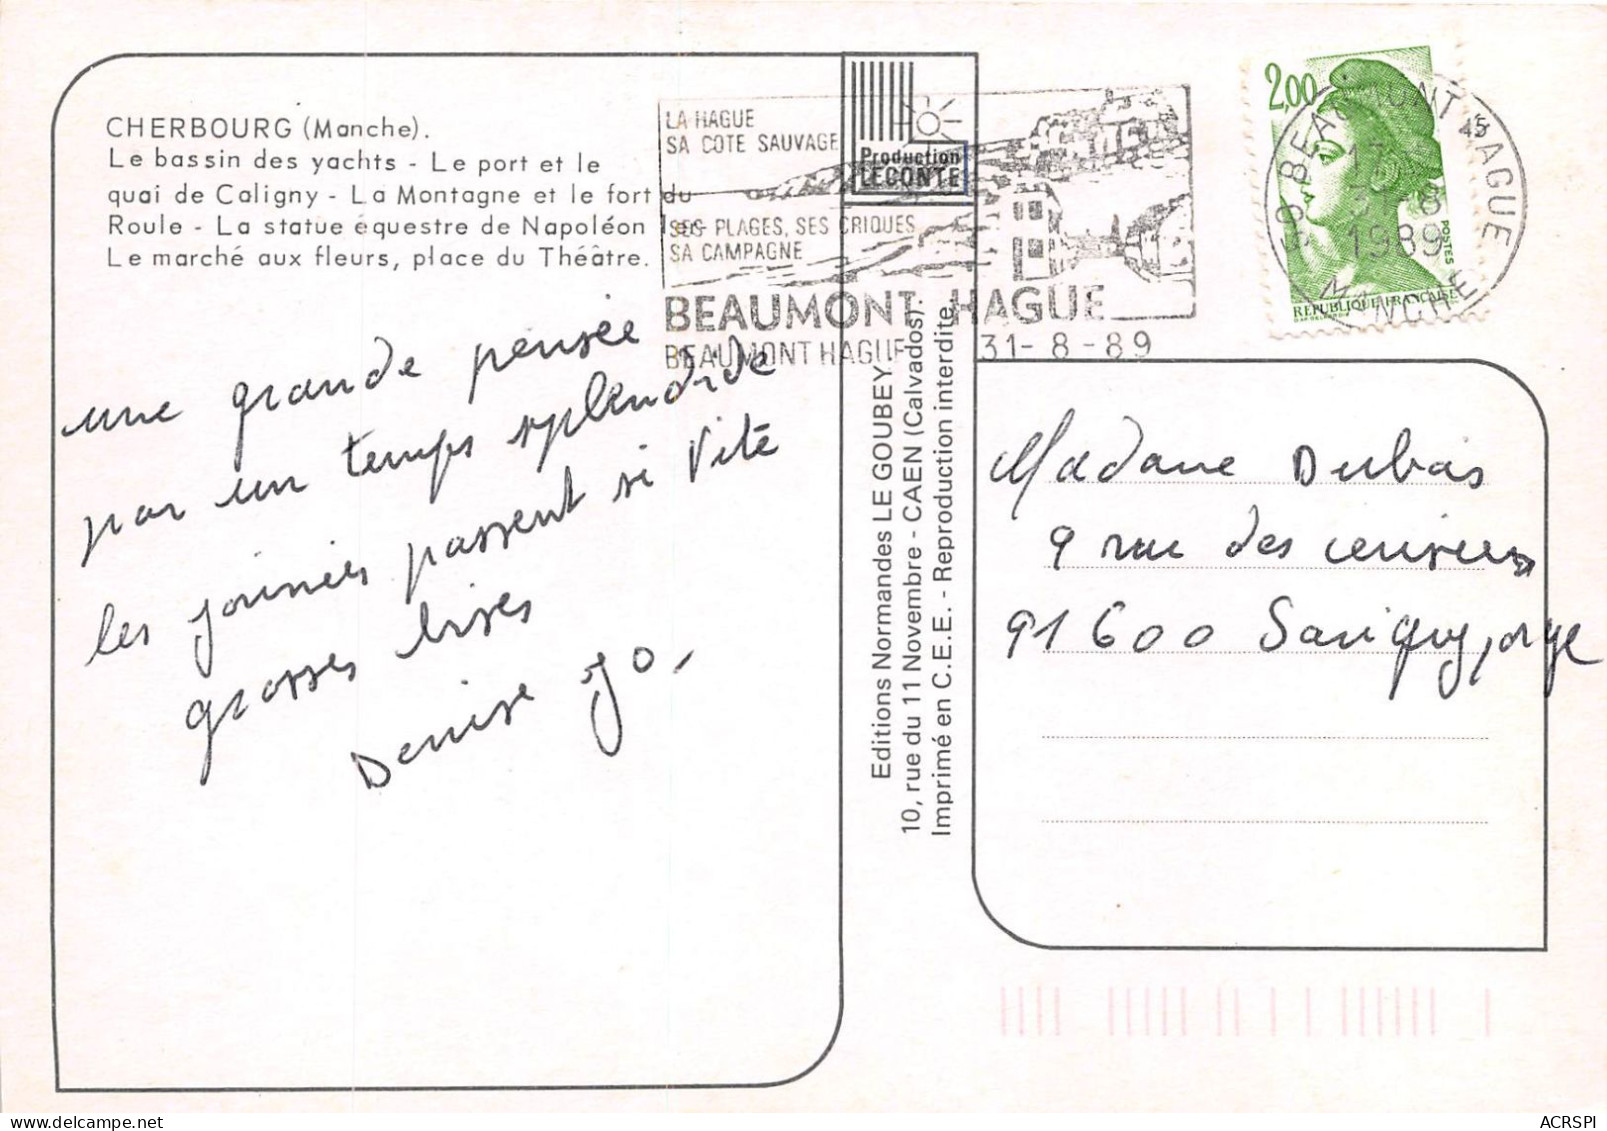 CHERBOURG (Manche).
Le bassin des yachts - Le port et le
quai de Caligny - La Montagne et le fort du
Roule - La statue équestre de Napoléon 1er -
Le marché aux fleurs, place du Théâtre.
une grande pensée
par un temps splendide
les journées passent si vite
grosses bises
Denise Jo,
LA HAGUE
SA COTE SAUVAGE
SES PLAGES, SES CRIQUES
SA CAMPAGNE
BEAUMONT HAGUE
BEAUMONT HAGUE
31-8-89
Production
LECONTE
Editions Normandes LE GOUBEY.
10, rue du 11 Novembre - CAEN (Calvados).
Imprimé en C.E.E. - Reproduction interdite.
2,00
POSTES
REPUBLIQUE FRANCAISE
50 BEAUMONT HAGUE
31-8
1989
MANCHE
Madame Dubas
9 rue des cerisiers
91600 Savigny, orge
ACRSPI